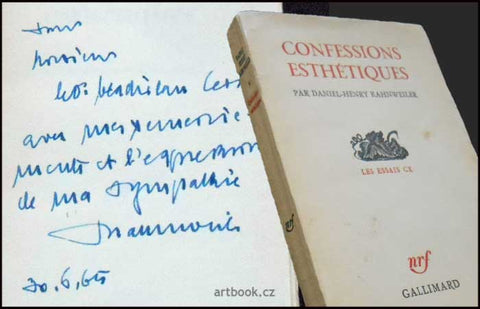 Pour
Monsieur
avec mes remercie-
ments et l'expression
de ma sympathie
30.6.65
CONFESSIONS
ESTHÉTIQUES
PAR DANIEL-HENRY KAHNWEILER
LES ESSAIS CX
nrf
GALLIMARD
artbook.cz